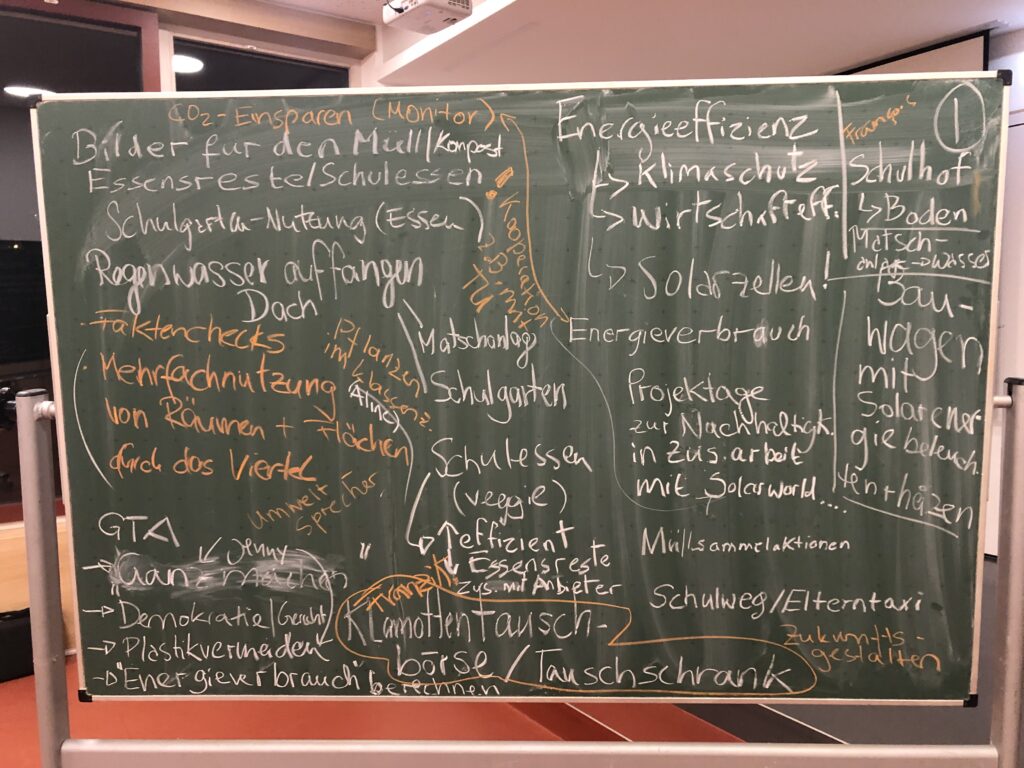 CO2-Einsparen (Monitor)
Bilder für den Müll/Kompost
Essensreste/Schulessen
Schulgarten-Nutzung (Essen)
Regenwasser auffangen
Dach
Matschanlage
Schulgarten
· Kooperation
z.B. mit
TU
· Faktenchecks
· Mehrfachnutzung
von Räumen + Flächen
durch das Viertel
· Pflanzen
im Klassenz.
Umwelt
sprecher
Schulessen
(veggie)
effizient
Essensreste
zus. mit Anbieter
GTA
Jenny
"
Demokratie/Gericht
Plastikvermeiden
"Energieverbrauch"
berechnen
Klamottentausch-
börse/Tauschschrank
Energieeffizienz
Klimaschutz
Wirtschafteff.
Solarzellen!
Energieverbrauch
Projektage
zur Nachhaltigk.
in zus.arbeit
mit Solarworld....
Müllsammelaktionen
Schulweg/Elterntaxi
Zukunfts-
gestalten
1
Schulhof
Boden
Matsch-
anlage → Wasser
Bau-
wagen
mit
Solarener-
gie beleuch.